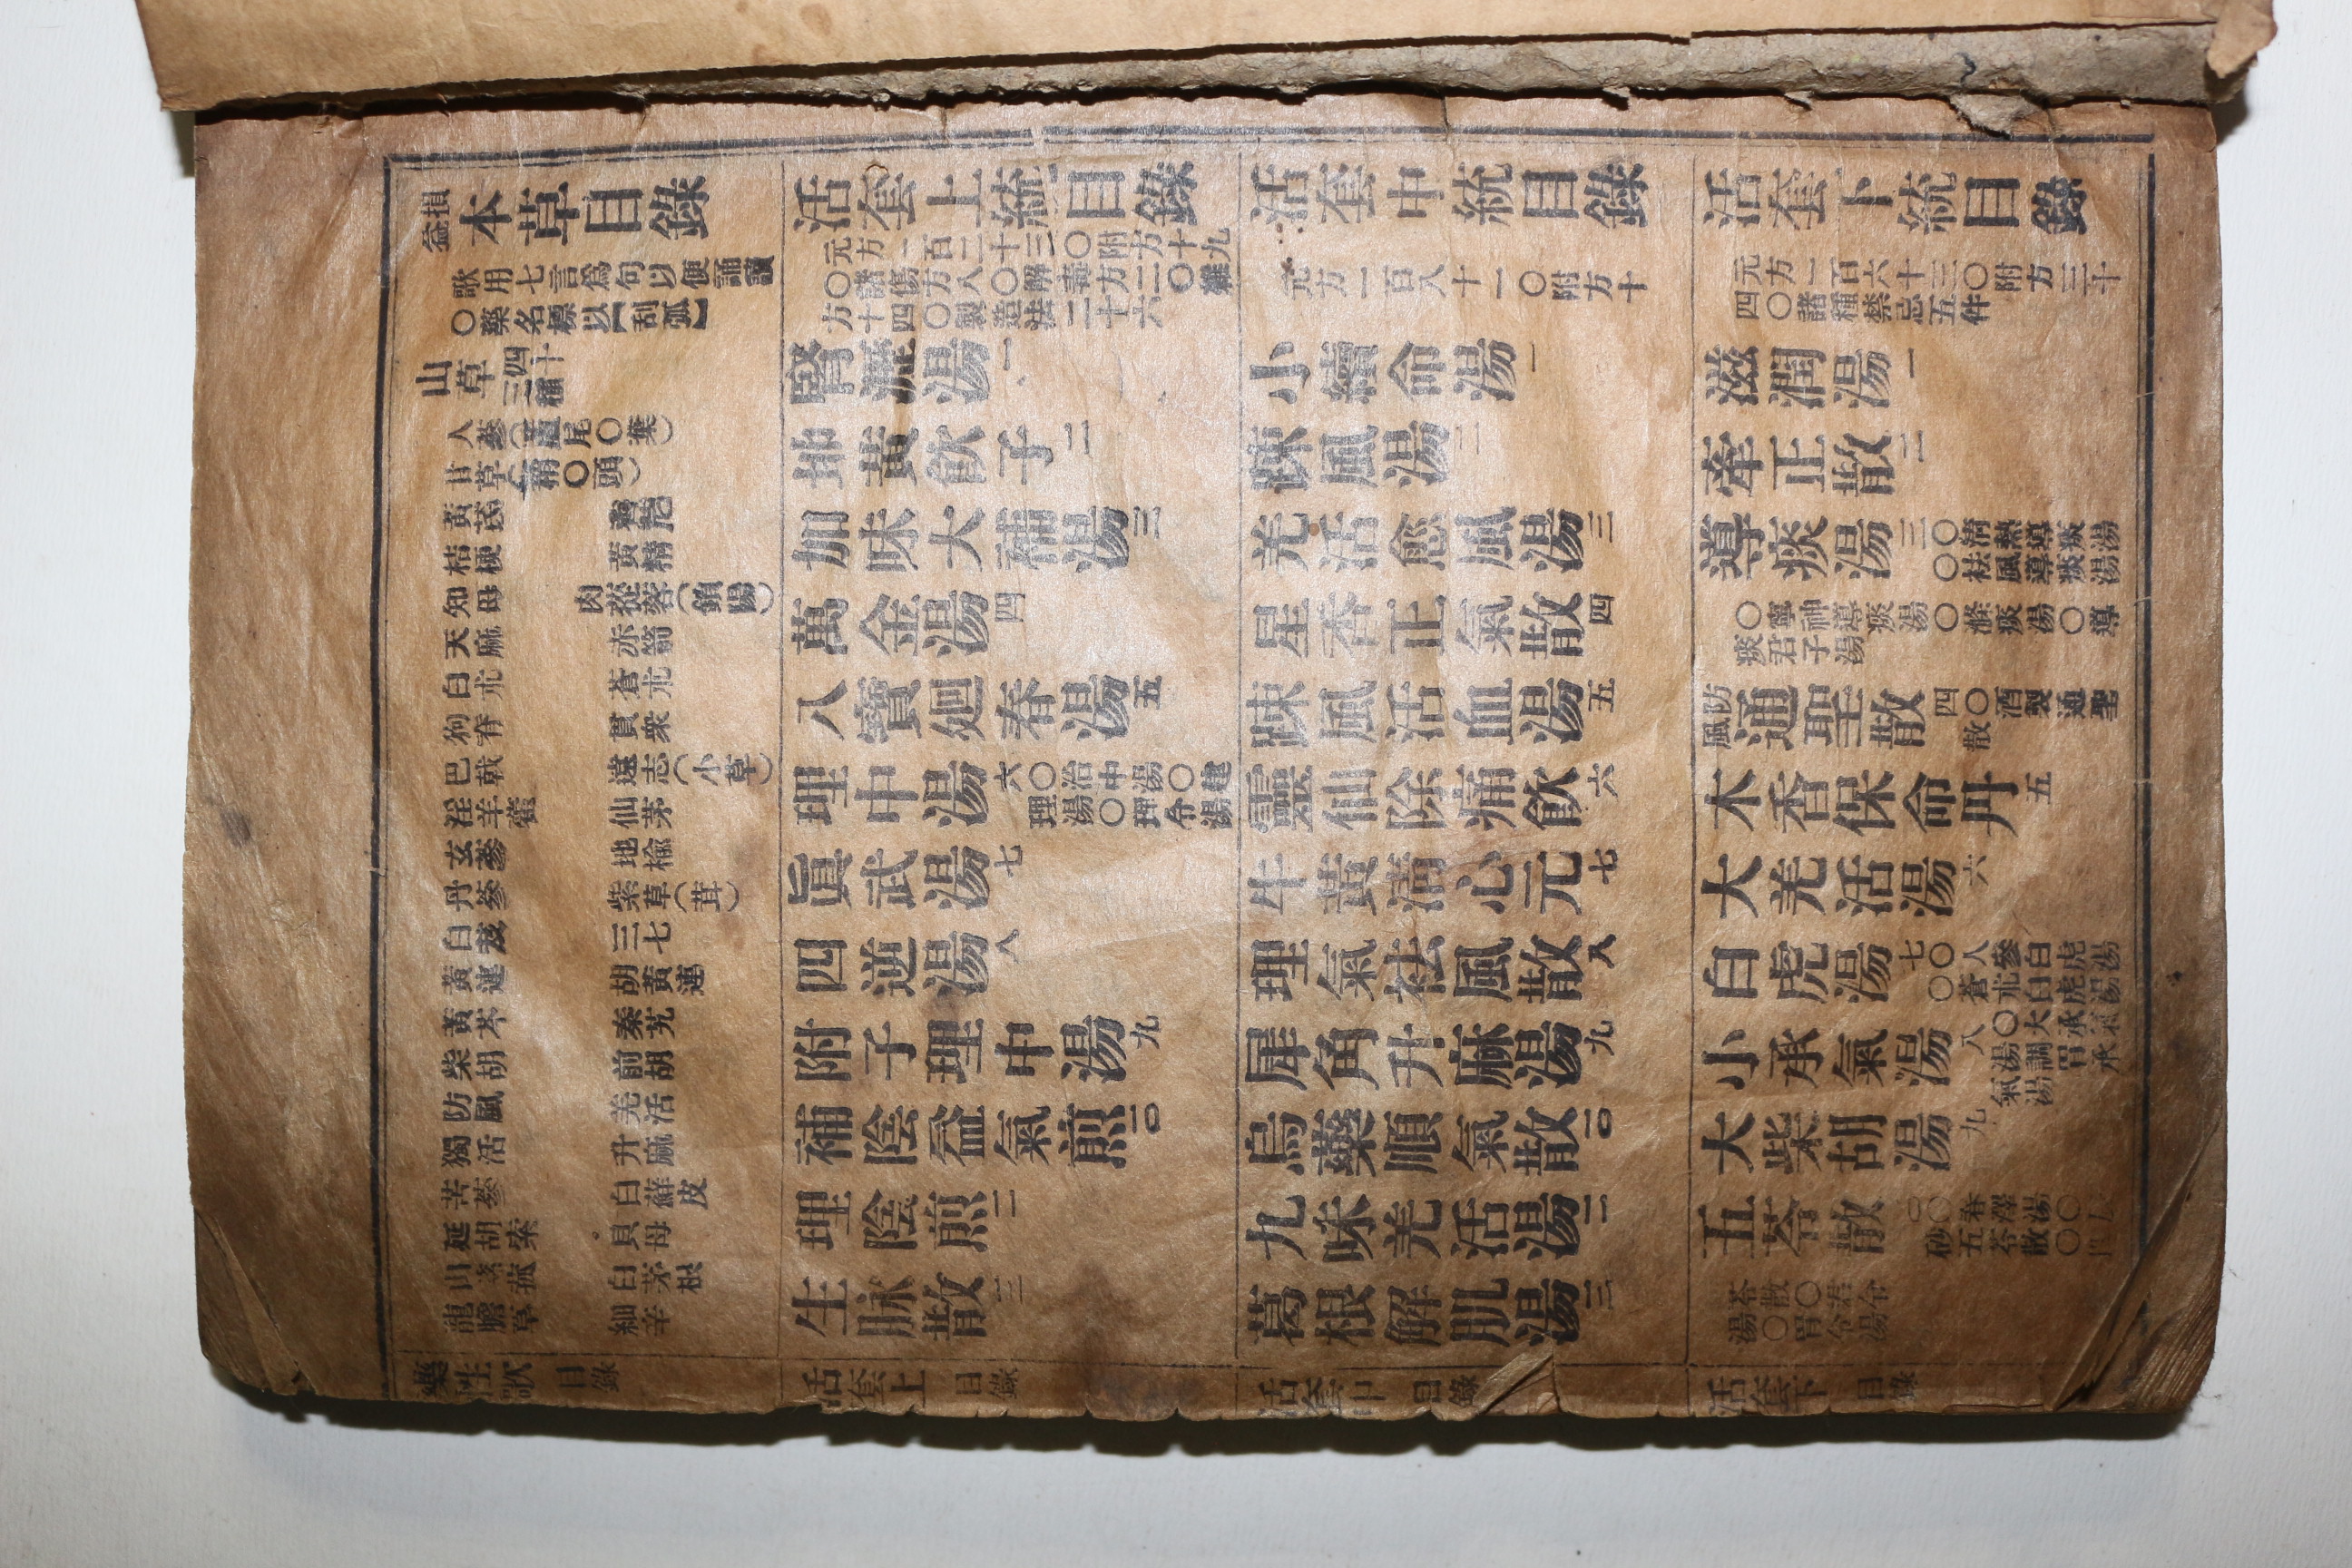 損益本草目錄
歌用七言爲句以便誦讀
〇藥名標以【刮弧】
山草四十三種
人蔘(蘆尾〇葉)
甘草(稍〇頭)
黃芪 薺苨
桔梗 黃精
知母 肉蓯蓉(鎖陽)
天麻 赤箭
白朮 蒼朮
狗脊 貫衆
巴戟 遠志(小草)
淫羊藿 仙茅
玄蔘 地楡
丹蔘 紫草(茸)
白芨 三七
黃連 胡黃連
黃芩 秦艽
柴胡 前胡
防風 羌活
獨活 升麻
苦蔘 白蘚皮
延胡索 貝母
山茨菰 白茅根
龍膽草 細辛
藥性歌 目錄
活套上統目錄
元方一百二十三〇附方十九
〇諸傷方八〇解毒方二〇雜
方十四〇製造法二十六
腎瀝湯一
地黃飮子二
加味大補湯三
萬金湯四
八寶廻春湯五
理中湯六〇治中湯〇建
理湯〇理苓湯
眞武湯七
四逆湯八
附子理中湯九
補陰益氣煎一〇
理陰煎一一
生脉散一二
活套上 目錄
活套中統目錄
元方一百八十一〇附方十
小續命湯一
踈風湯二
羌活愈風湯三
星香正氣散四
踈風活血湯五
靈仙除痛飮六
牛黃淸心元七
理氣祛風散八
犀角升麻湯九
烏藥順氣散一〇
九味羌活湯一一
葛根解肌湯一二
活套中 目錄
活套下統目錄
元方一百六十三〇附方三十
四〇諸種禁忌五件
滋潤湯一
牽正散二
導痰湯三〇淸熱導痰湯
〇祛風導痰湯
〇寧神導痰湯〇滌痰湯〇導
痰君子湯
防風通聖散四〇酒製通聖
散
木香保命丹五
大羌活湯六
白虎湯七〇人蔘白虎湯
〇蒼朮白虎湯
小承氣湯八〇大承氣
湯調胃承
氣湯
大柴胡湯九
五苓散一〇〇春澤湯〇
砂五苓散〇
苓散〇君苓
湯〇胃苓湯
活套下 目錄